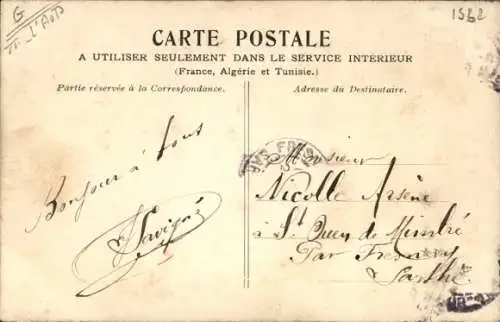 G
1562
CARTE POSTALE
A UTILISER SEULEMENT DANS LE SERVICE INTÉRIEUR
(France, Algérie et Tunisie.)
Partie réservée à la Correspondance.
Adresse du Destinataire.
Bonjour à tous
Monsieur
Nicolle Arsène
à St Ouen de Mimbré
Par Fresnay
Sarthe